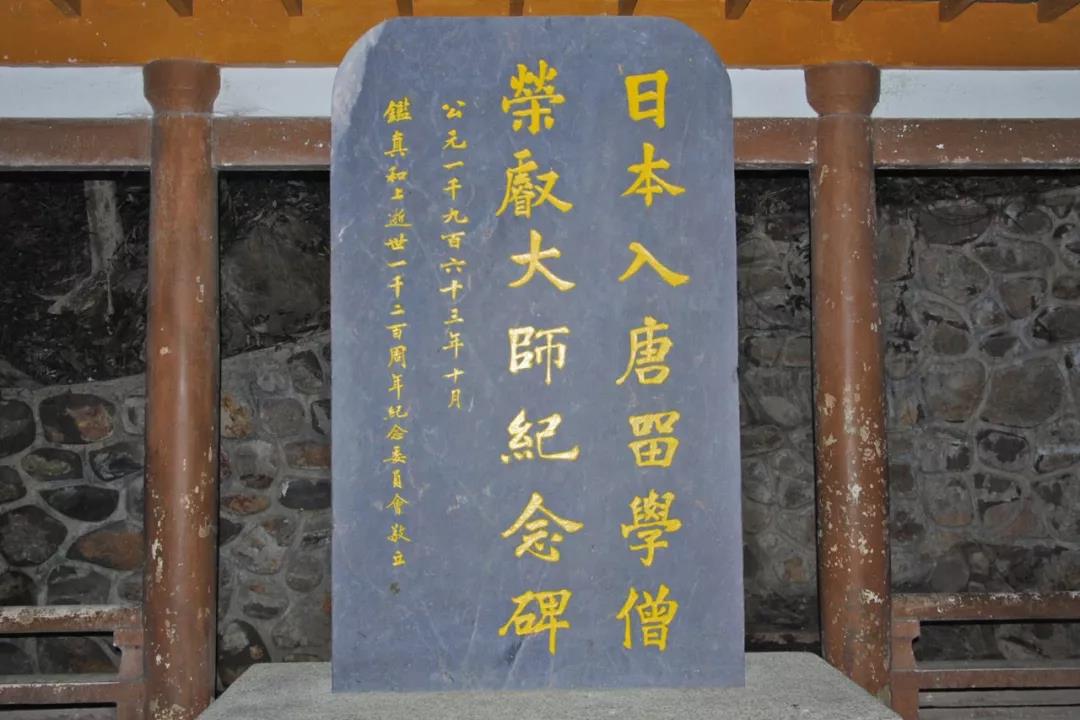 日本入唐畱學僧
榮叡大師紀念碑
公元一千九百六十三年十月
鑑真和上逝世一千二百周年紀念委員會敬立